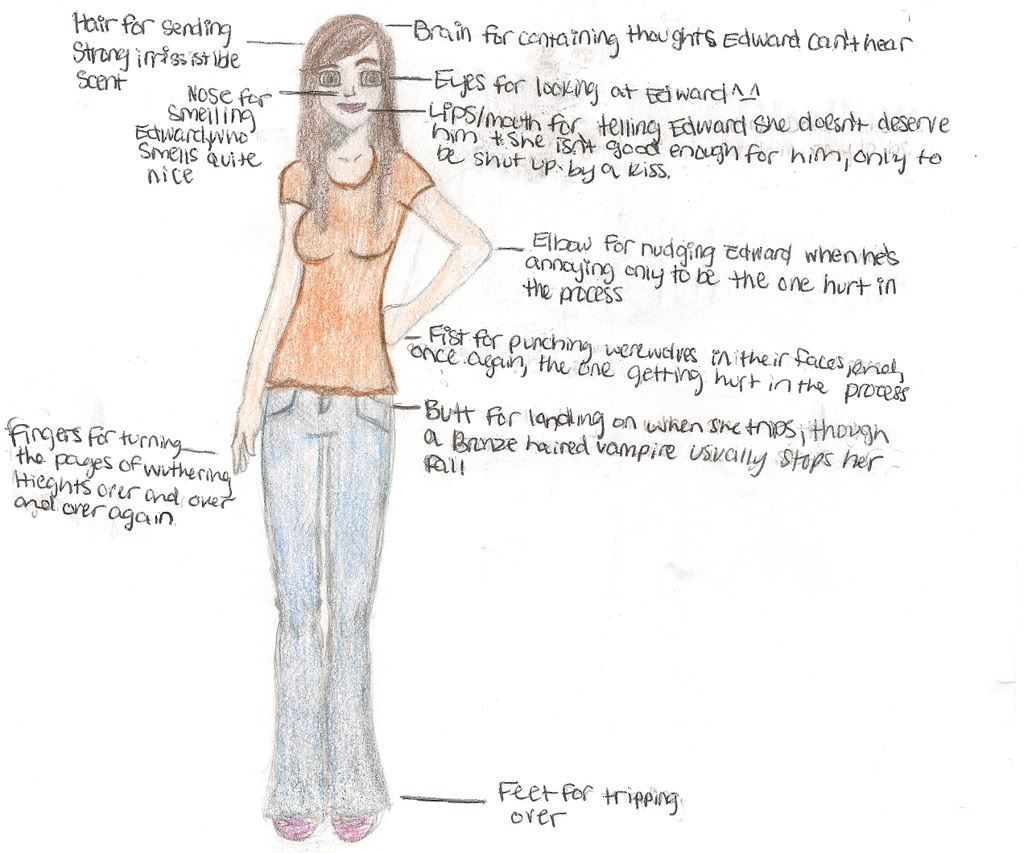 Hair for sending
Strong irrisistible
scent
Brain for containing thoughts Edward can't hear
Eyes for looking at Edward ^_^
Nose for
smelling
Edward, who
smells quite
nice
Lips/mouth for telling Edward she doesn't deserve
him + she isn't good enough for him, only to
be shut up by a kiss.
Elbow for nudging Edward when he's
annoying only to be the one hurt in
the process
Fist for punching werewolves in their faces, and,
once again, the one getting hurt in the process
Butt for landing on when she trips, though
a Bronze haired vampire usually stops her
fall
Fingers for turning
the pages of wuthering
Hieghts over and over
and over again
Feet for tripping
over